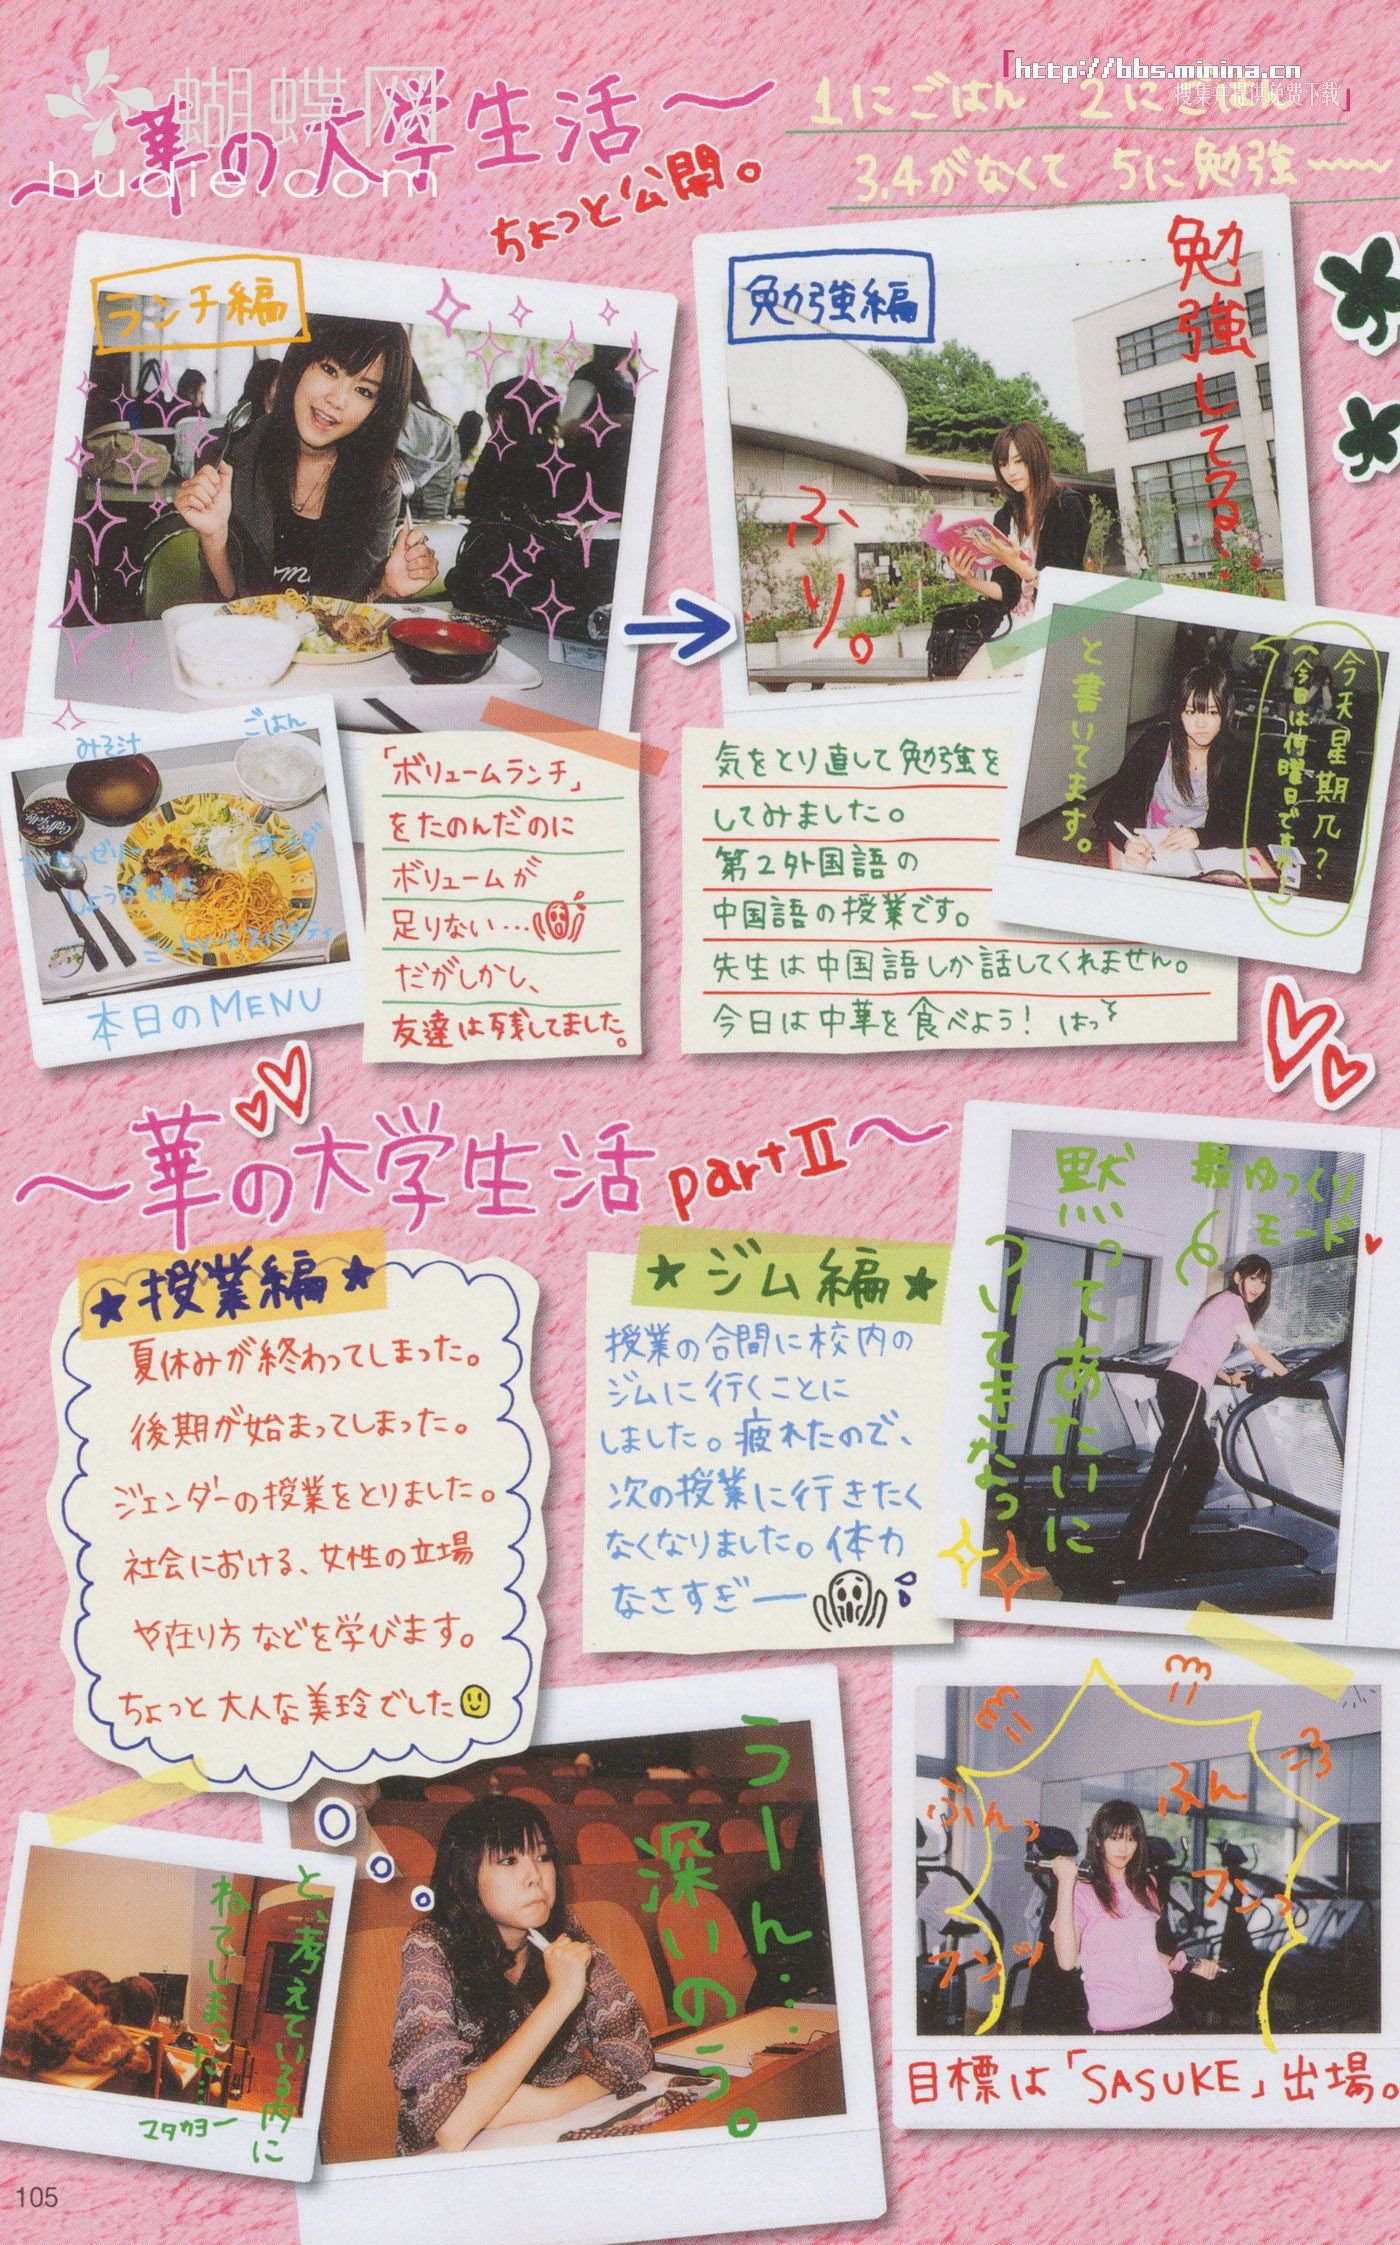 ～華の大学生活～
ちょっと公開。
「http://bbs.minina.cn
搜集并提供免费下载」
蝴蝶网
hudie.com
1にごはん 2にごはん
3,4がなくて 5に勉強～
ランチ編
みそ汁
ごはん
コーヒーゼリー
サラダ
しょうが焼き
ミートソーススパゲティ
本日のMENU
「ボリュームランチ」
をたのんだのに
ボリュームが
足りない…
だがしかし、
友達は残してました。
勉強編
勉強してる…
ふり。
気をとり直して勉強を
してみました。
第2外国語の
中国語の授業です。
先生は中国語しか話してくれません。
今日は中華を食べよう! はっ
今天星期几?
(今日は何曜日ですか)
と書いてます。
～華の大学生活 part II～
★授業編★
夏休みが終わってしまった。
後期が始まってしまった。
ジェンダーの授業をとりました。
社会における、女性の立場
や在り方などを学びます。
ちょっと大人な美玲でした
★ジム編★
授業の合間に校内の
ジムに行くことに
しました。疲れたので、
次の授業に行きたく
なくなりました。体力
なさすぎー
最ゆっくり
モード
黙ってあたいに
ついてきなっ
うーん…
深いのう。
と、考えている内に
ねてしまった…
マタカヨー
ふんっ
ふん
フンっ
フンッ
目標は「SASUKE」出場。
105